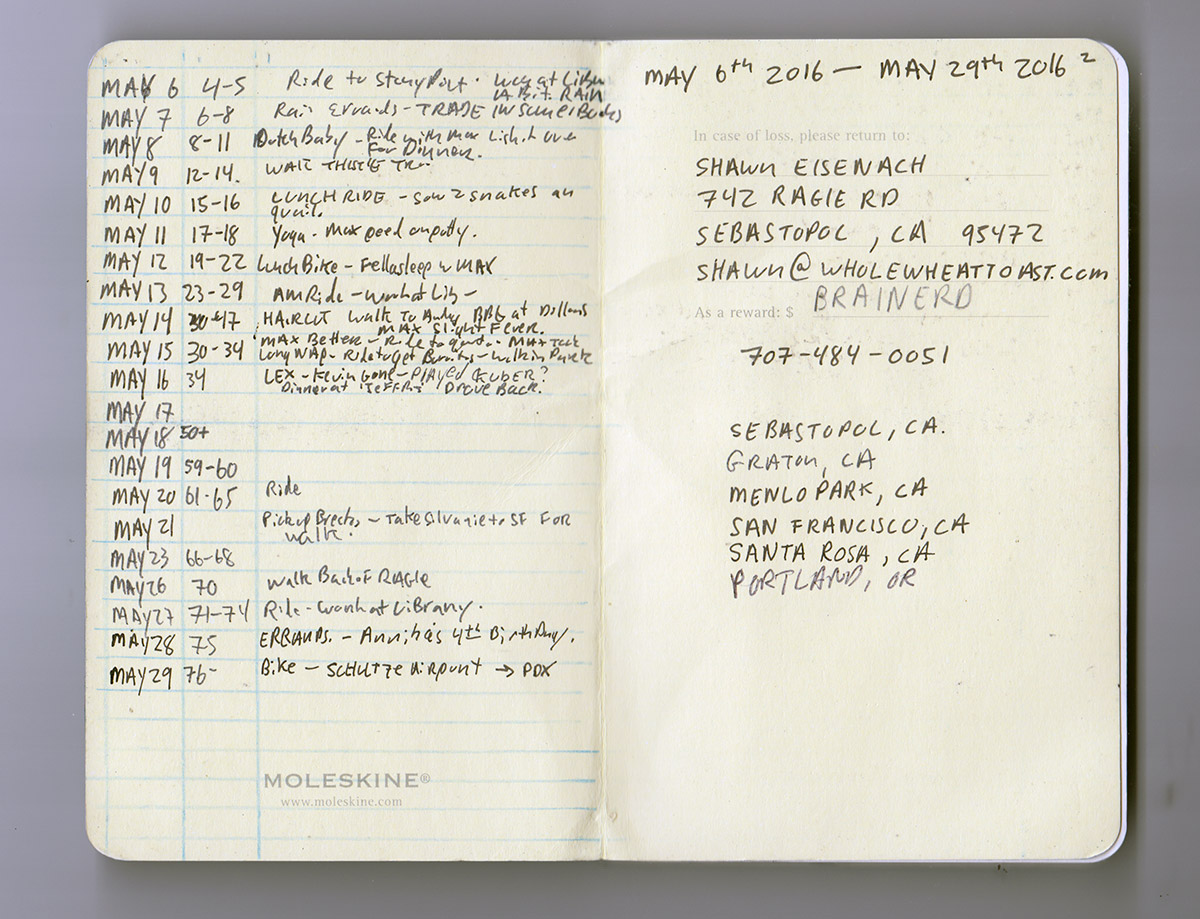 MAY 6 4-5 Ride to Stony Point. Work at Libr
A Bit RAIN
MAY 7 6-8 Rain Errands - TRADE IN SOME Books
MAY 8 8-11 Dutch Baby - Ride with Max over
For Dinner.
MAY 9 12-14. WALK
MAY 10 15-16 LUNCH RIDE - Saw 2 snakes an
quail.
MAY 11 17-18 Yoga - Max peed on potty.
MAY 12 19-22 Lunch Bike - Fell asleep w MAX
MAY 13 23-29 AM Ride - Work at Lib -
MAY 14 HAIRCUT walk To BBQ at Dillons
MAX Slight Fever.
MAY 15 30-34 MAX Better - Ride to - MAX Took
Long NAP - Ride to get Burritos - walk in Park
MAY 16 34 LEX - Kevin Gone - PLAYED ?
Dinner at Drove Back.
MAY 17
MAY 18 50+
MAY 19 59-60
MAY 20 61-65 Ride
MAY 21 Pickup - Take Silvanie to SF FOR
walk.
MAY 23 66-68
MAY 26 70 Walk Back of RAGLE
MAY 27 71-74 Ride - Work at Library.
MAY 28 75 ERRANDS. - 4th Birthday.
MAY 29 76- Bike - SCHULTZE Airport → PDX
MOLESKINE®
www.moleskine.com
MAY 6th 2016 — MAY 29th 2016 2
In case of loss, please return to:
SHAWN EISENACH
742 RAGLE RD
SEBASTOPOL, CA 95472
SHAWN@WHOLEWHEATTOAST.COM
As a reward: $ BRAINERD
707-484-0051
SEBASTOPOL, CA.
GRATON, CA
MENLO PARK, CA
SAN FRANCISCO, CA
SANTA ROSA, CA
PORTLAND, OR